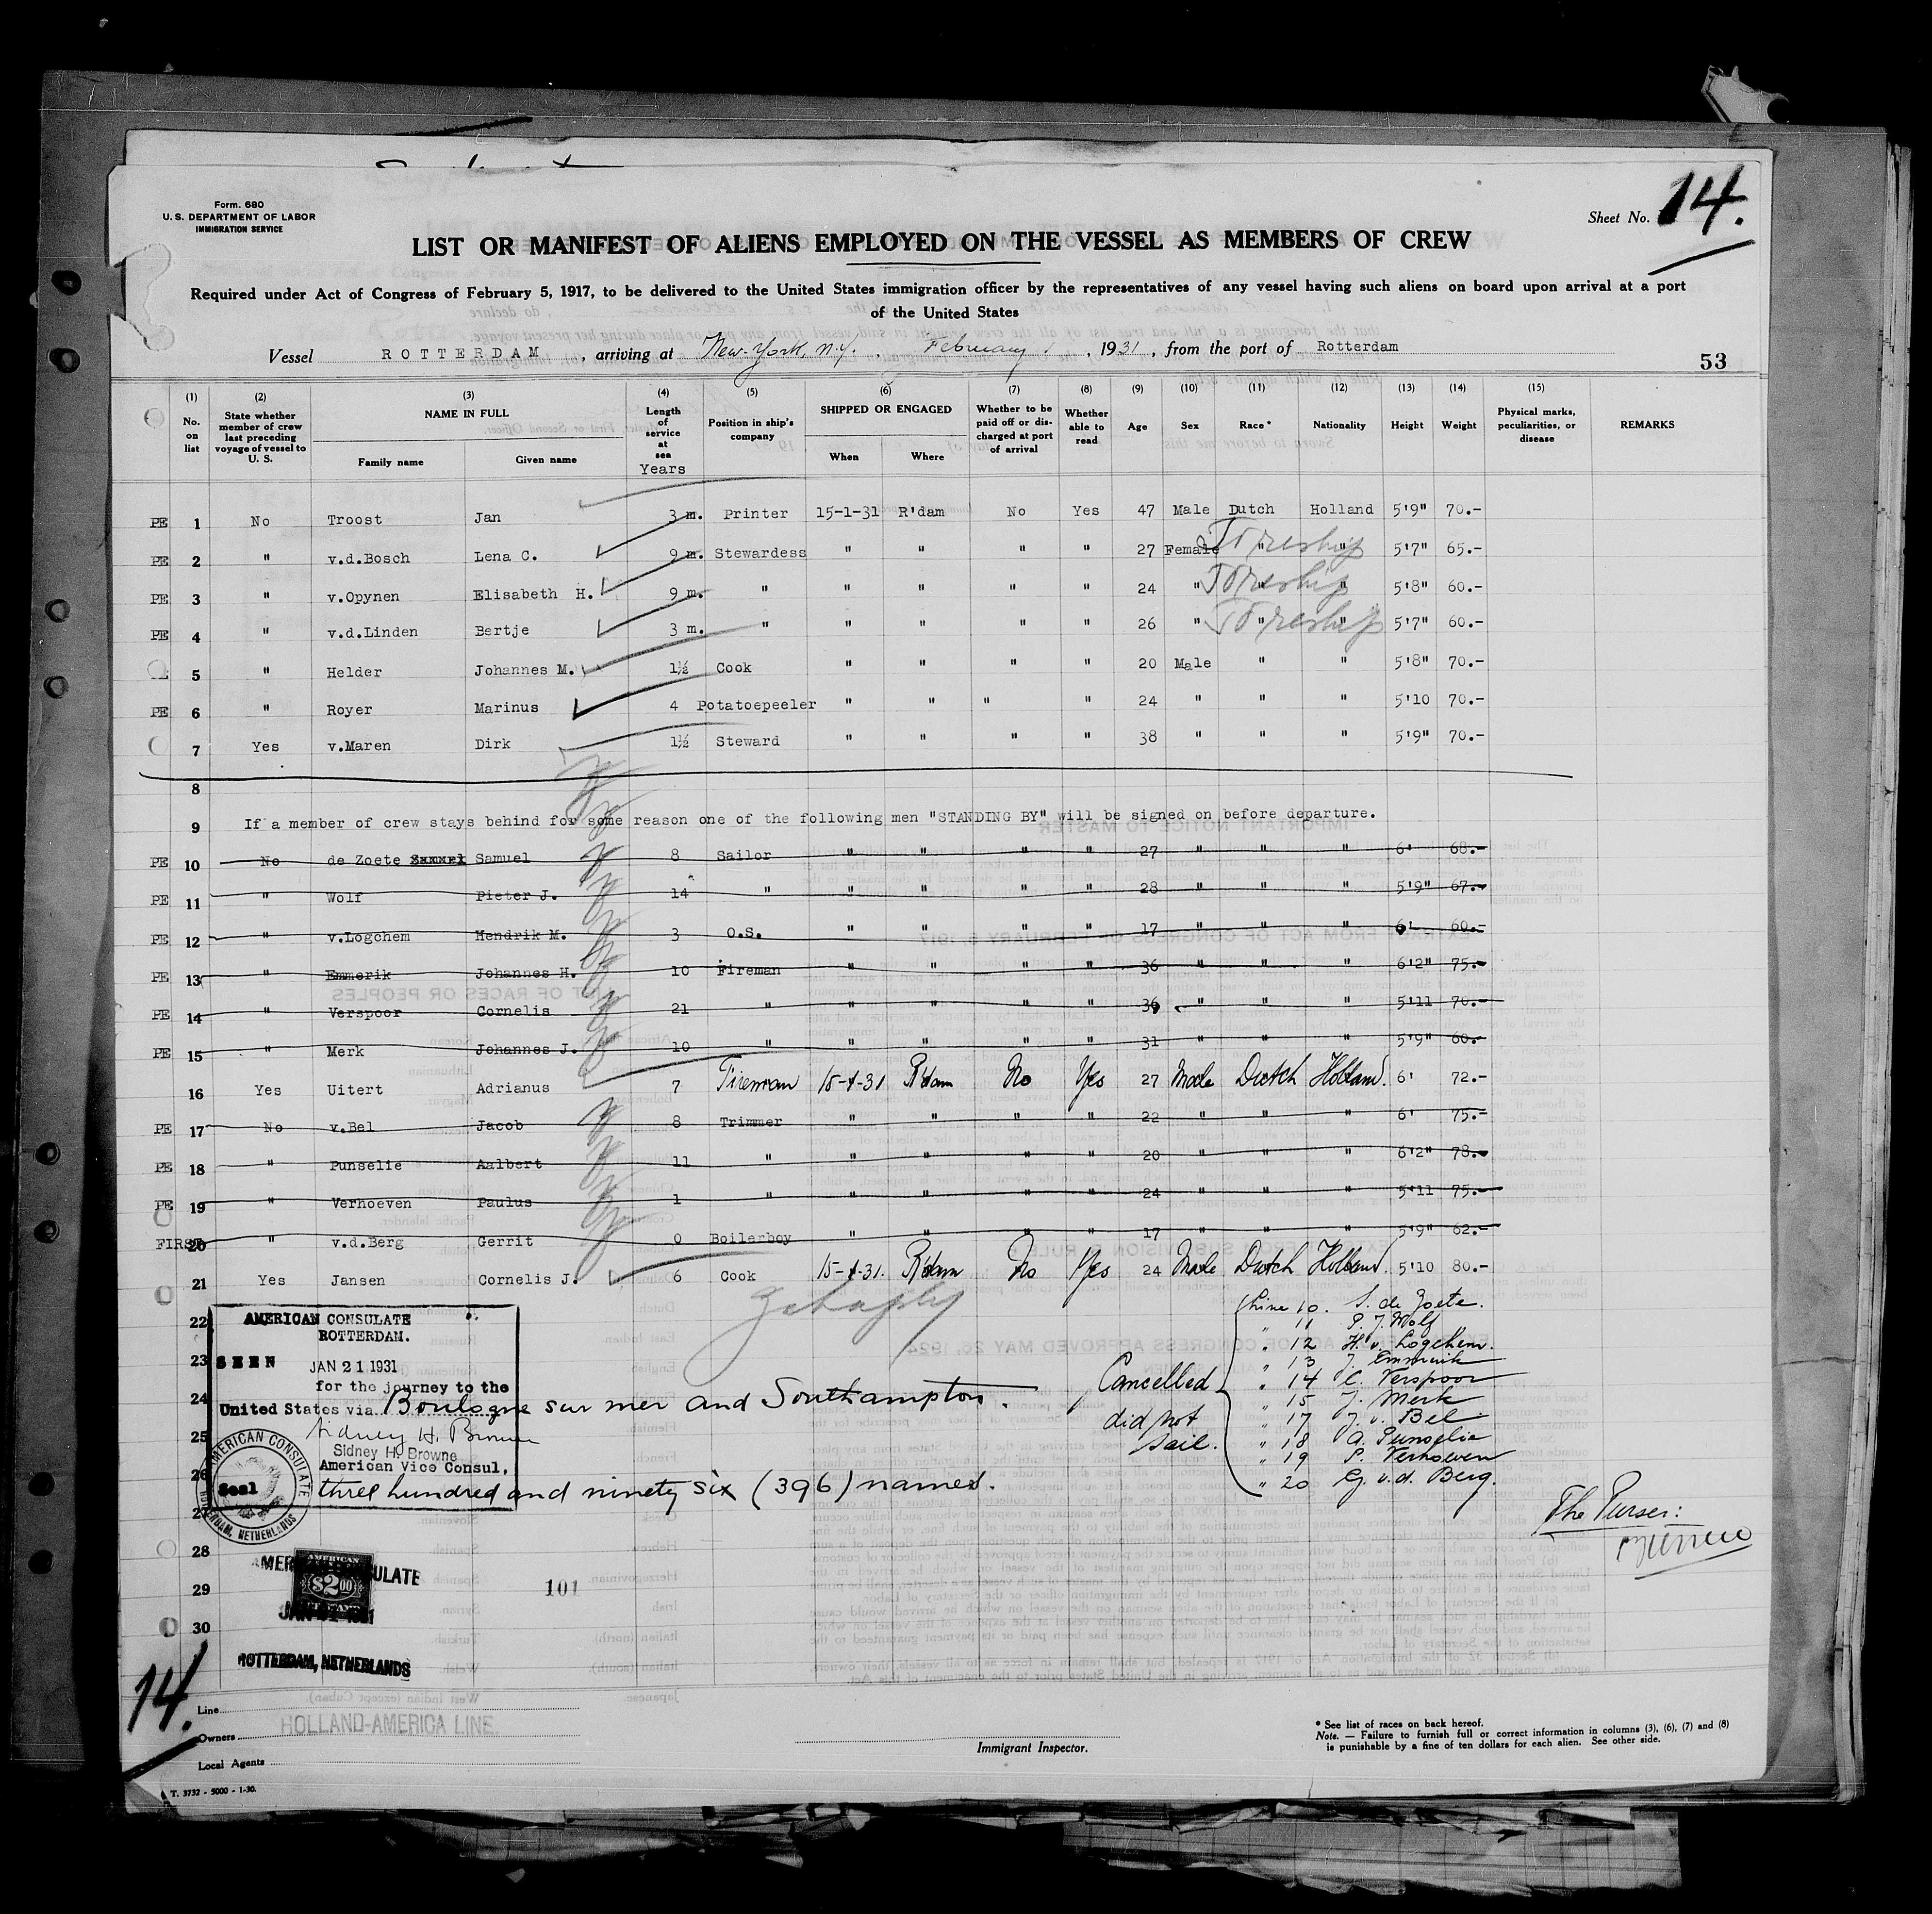 Form. 680
U. S. DEPARTMENT OF LABOR
IMMIGRATION SERVICE
Sheet No. 14.
LIST OR MANIFEST OF ALIENS EMPLOYED ON THE VESSEL AS MEMBERS OF CREW
Required under Act of Congress of February 5, 1917, to be delivered to the United States immigration officer by the representatives of any vessel having such aliens on board upon arrival at a port
of the United States
Vessel ROTTERDAM , arriving at New-York, N.Y. , February 1 , 1931 , from the port of Rotterdam
53
(1) No. on list
(2) State whether member of crew last preceding voyage of vessel to U. S.
(3) NAME IN FULL
Family name
Given name
(4) Length of service at sea Years
(5) Position in ship's company
(6) SHIPPED OR ENGAGED
When
Where
(7) Whether to be paid off or discharged at port of arrival
(8) Whether able to read
(9) Age
(10) Sex
(11) Race*
(12) Nationality
(13) Height
(14) Weight
(15) Physical marks, peculiarities, or disease
REMARKS
PE 1 No Troost Jan 3 m. Printer 15-1-31 R'dam No Yes 47 Male Dutch Holland 5'9" 70.-
PE 2 " v.d.Bosch Lena C. 9 m. Stewardess " " " " 27 Female " " 5'7" 65.-
PE 3 " v.Opynen Elisabeth H. 9 m. " " " " " 24 " " " 5'8" 60.-
PE 4 " v.d.Linden Bertje 3 m. " " " " " 26 " " " 5'7" 60.-
5 " Helder Johannes M. 1½ Cook " " " " 20 Male " " 5'8" 70.-
PE 6 " Royer Marinus 4 Potatoepeeler " " " " 24 " " " 5'10 70.-
7 Yes v.Maren Dirk 1½ Steward " " " " 38 " " " 5'9" 70.-
8
9 If a member of crew stays behind for some reason one of the following men "STANDING BY" will be signed on before departure.
PE 10 No de Zoete Samuel 8 Sailor " " " " 27 " " " 6' 68.-
PE 11 " Wolf Pieter J. 14 " " " " " 28 " " " 5'9" 67.-
PE 12 " v.Logchem Hendrik M. 3 O.S. " " " " 17 " " " 6' 60.-
PE 13 " Emmerik Johannes H. 10 Fireman " " " " 36 " " " 6'2" 75.-
PE 14 " Verspoor Cornelis 21 " " " " " 36 " " " 5'11 70.-
PE 15 " Merk Johannes J. 10 " " " " " 31 " " " 5'9" 60.-
16 Yes Uitert Adrianus 7 Fireman 15-1-31 R'dam No Yes 27 Male Dutch Holland. 6' 72.-
PE 17 No v.Bel Jacob 8 Trimmer " " " " 22 " " " 6' 75.-
PE 18 " Punselie Aalbert 11 " " " " " 20 " " " 6'2" 78.-
PE 19 " Verhoeven Paulus 1 " " " " " 24 " " " 5'11 75.-
FIRST 20 " v.d.Berg Gerrit 0 Boilerboy " " " " 17 " " " 5'9" 62.-
21 Yes Jansen Cornelis J. 6 Cook 15-1-31. R'dam No Yes 24 Male Dutch Holland. 5'10 80.-
22
23
24
25
26
27
28
29
30
AMERICAN CONSULATE
ROTTERDAM.
SEEN JAN 21 1931
for the journey to the
United States via Boulogne sur mer and Southampton.
Sidney H. Browne
Sidney H. Browne
American Vice Consul,
Seal
AMERICAN CONSULATE
ROTTERDAM, NETHERLANDS
three hundred and ninety six (396) names.
Cancelled
did not
sail.
Line 10. S. de Zoete.
" 11 P. J. Wolf
" 12 H. v. Logchem.
" 13 J. Emmerik
" 14 C. Verspoor
" 15 J. Merk
" 17 J. v. Bel
" 18 A. Punselie
" 19 P. Verhoeven
" 20 G. v.d. Berg.
The Purser:
AMERICAN CONSULATE
AMERICAN
$2.00
JAN 21 1931
ROTTERDAM, NETHERLANDS
101
14.
Line
HOLLAND-AMERICA LINE.
Owners
Local Agents
Immigrant Inspector.
* See list of races on back hereof.
Note. — Failure to furnish full or correct information in columns (3), (6), (7) and (8)
is punishable by a fine of ten dollars for each alien. See other side.
T. 3732 - 5000 - 1-30.